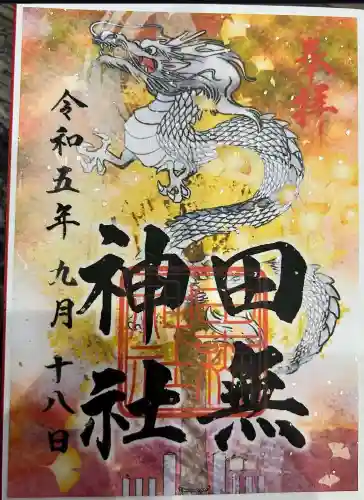 奉拝
田無
神社
令和五年九月十八日